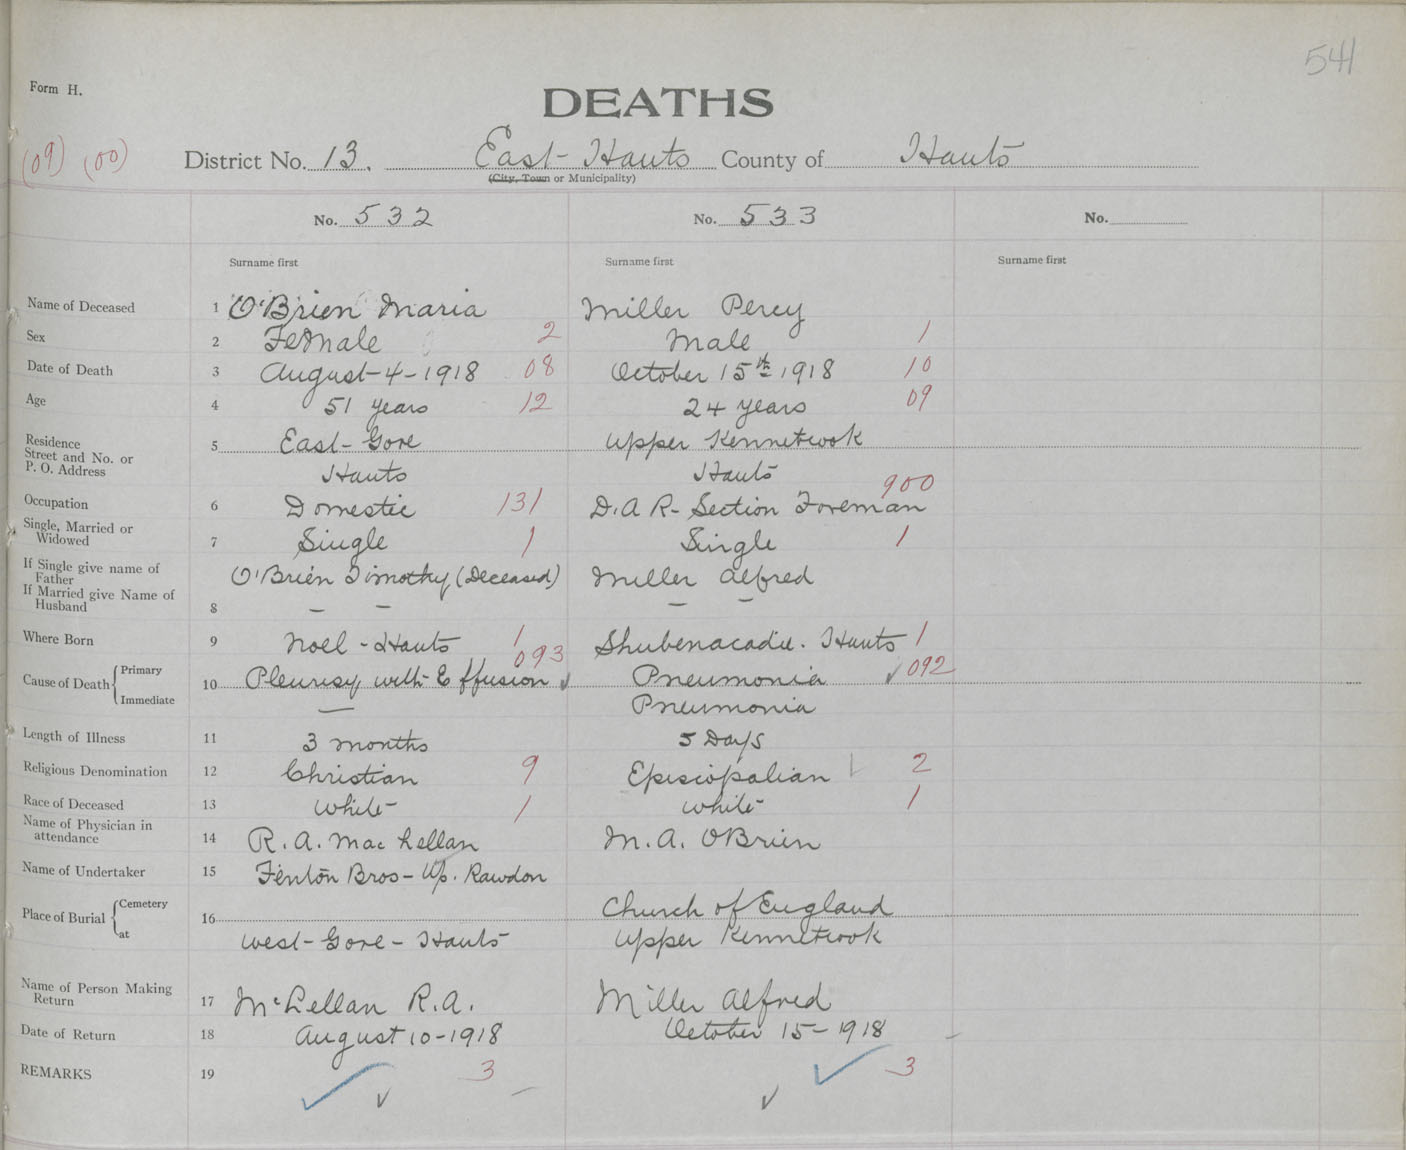 541
Form H.
DEATHS
(09) (00)
District No. 13. East-Hants County of Hants
(City, Town or Municipality)
No. 532 No. 533 No.
Surname first Surname first Surname first
Name of Deceased 1 O'Brien Maria Miller Percy
Sex 2 Female 2 Male 1
Date of Death 3 August-4-1918 08 October 15th 1918 10
Age 4 51 years 12 24 years 09
Residence
Street and No. or
P. O. Address
5 East-Gore Upper Kennetcook
Hants Hants
Occupation 6 Domestic 131 D.A R- Section Foreman 900
Single, Married or
Widowed
7 Single 1 Single 1
If Single give name of
Father
O'Brien Timothy (Deceased) Miller Alfred
If Married give Name of
Husband
8 — — — —
Where Born 9 Noel-Hants 1 Shubenacadie. Hants 1
Cause of Death Primary 10 Pleurisy with Effusion ✓ 093 Pneumonia ✓ 092
Immediate — Pneumonia
Length of Illness 11 3 months 5 Days
Religious Denomination 12 Christian 9 Episcopalian 2
Race of Deceased 13 White 1 White 1
Name of Physician in
attendance
14 R. A. MacLellan M. A. O'Brien
Name of Undertaker 15 Fenton Bros- Up. Rawdon
Place of Burial Cemetery 16 Church of England
at West-Gore-Hants Upper Kennetcook
Name of Person Making
Return
17 McLellan R.A. Miller Alfred
Date of Return 18 August 10-1918 October 15-1918
REMARKS 19 ✓ ✓ 3 ✓ ✓ 3